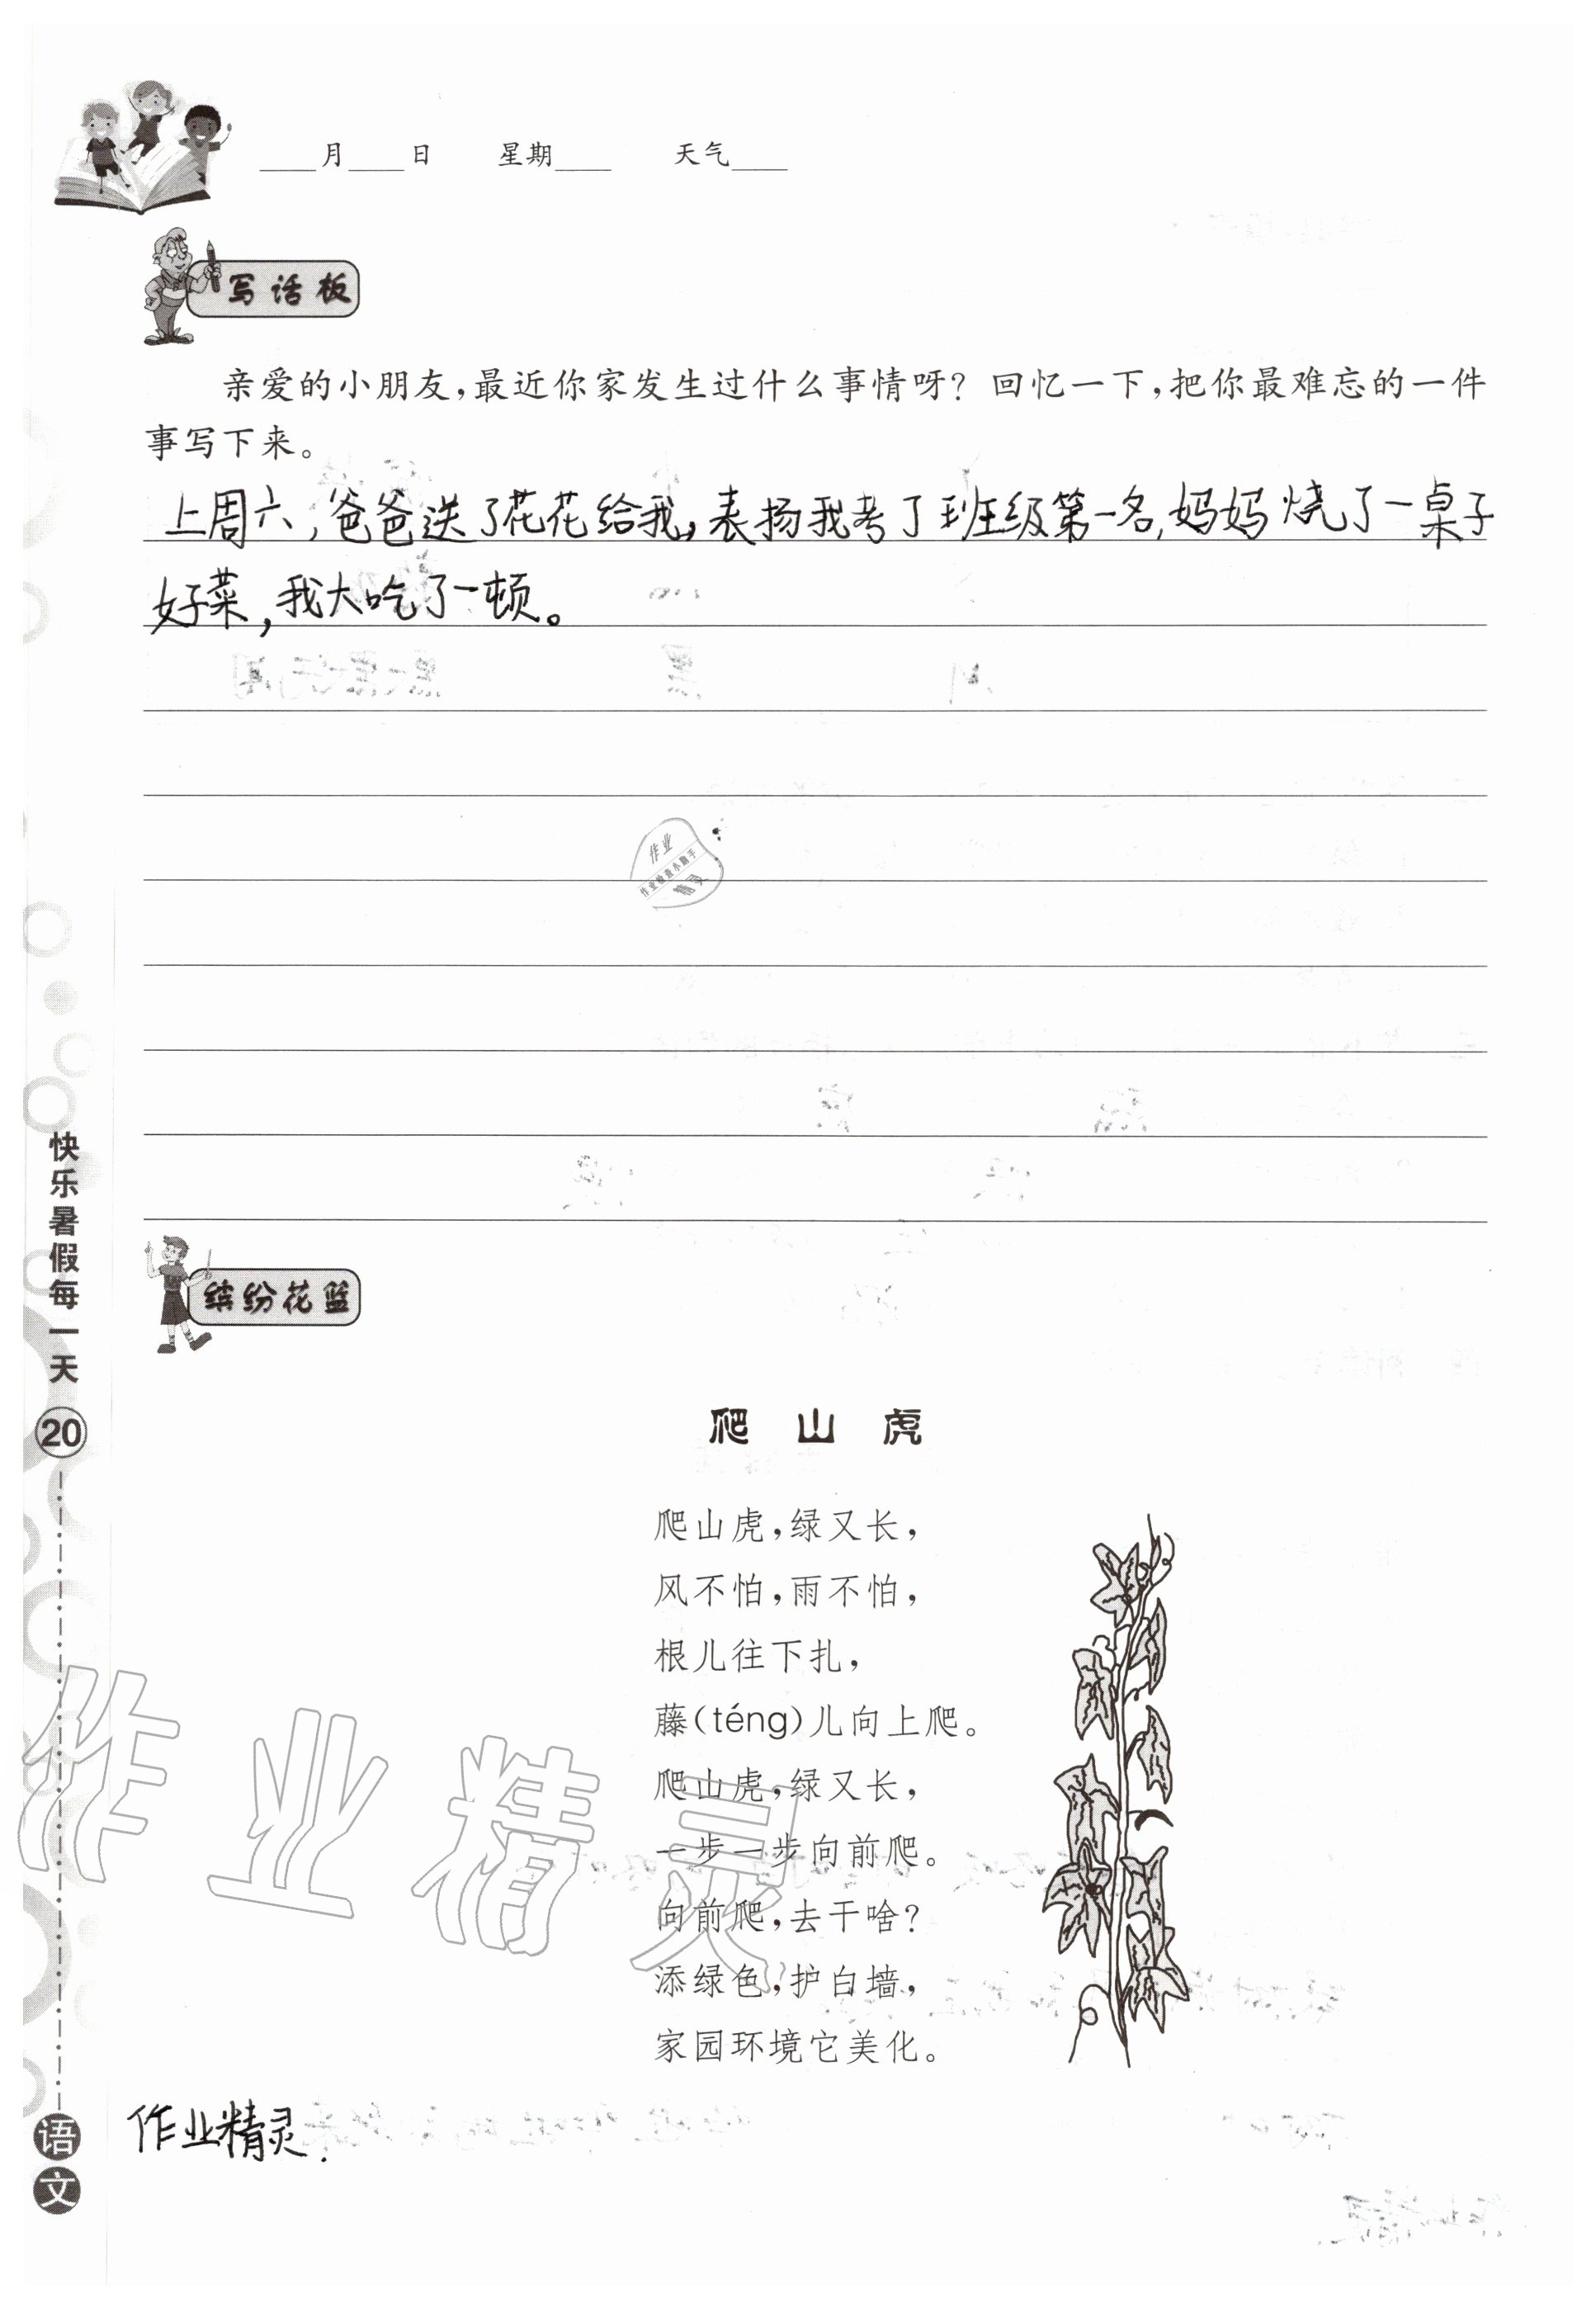 ____月____日 星期____ 天气____
写话板
亲爱的小朋友,最近你家发生过什么事情呀? 回忆一下,把你最难忘的一件
事写下来。
上周六,爸爸送了花花给我,表扬我考了班级第一名,妈妈烧了一桌子
好菜,我大吃了一顿。
作业
作业检查小助手
缤纷花篮
爬山虎
爬山虎,绿又长,
风不怕,雨不怕,
根儿往下扎,
藤(téng)儿向上爬。
爬山虎,绿又长,
一步一步向前爬。
向前爬,去干啥?
添绿色,护白墙,
家园环境它美化。
快乐暑假每一天
20
语文
作业精灵
作业精灵.